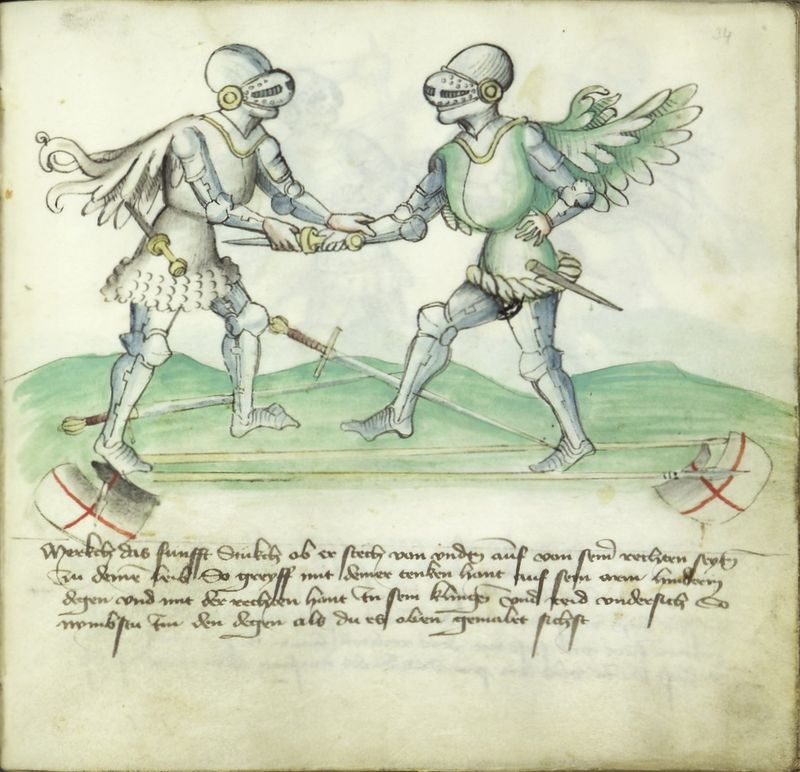 34
Merkch das funfft Stukch ob er stech von vnden auf von seinr rechten seytn
Zu deinem leib So greyff mit deiner tenken hant auf sein arm hinderm
degen vnd mit der rechten hant In sein klingen vnd reid vndersich So
nymbstu Im den degen als du es oben gemalet sichst